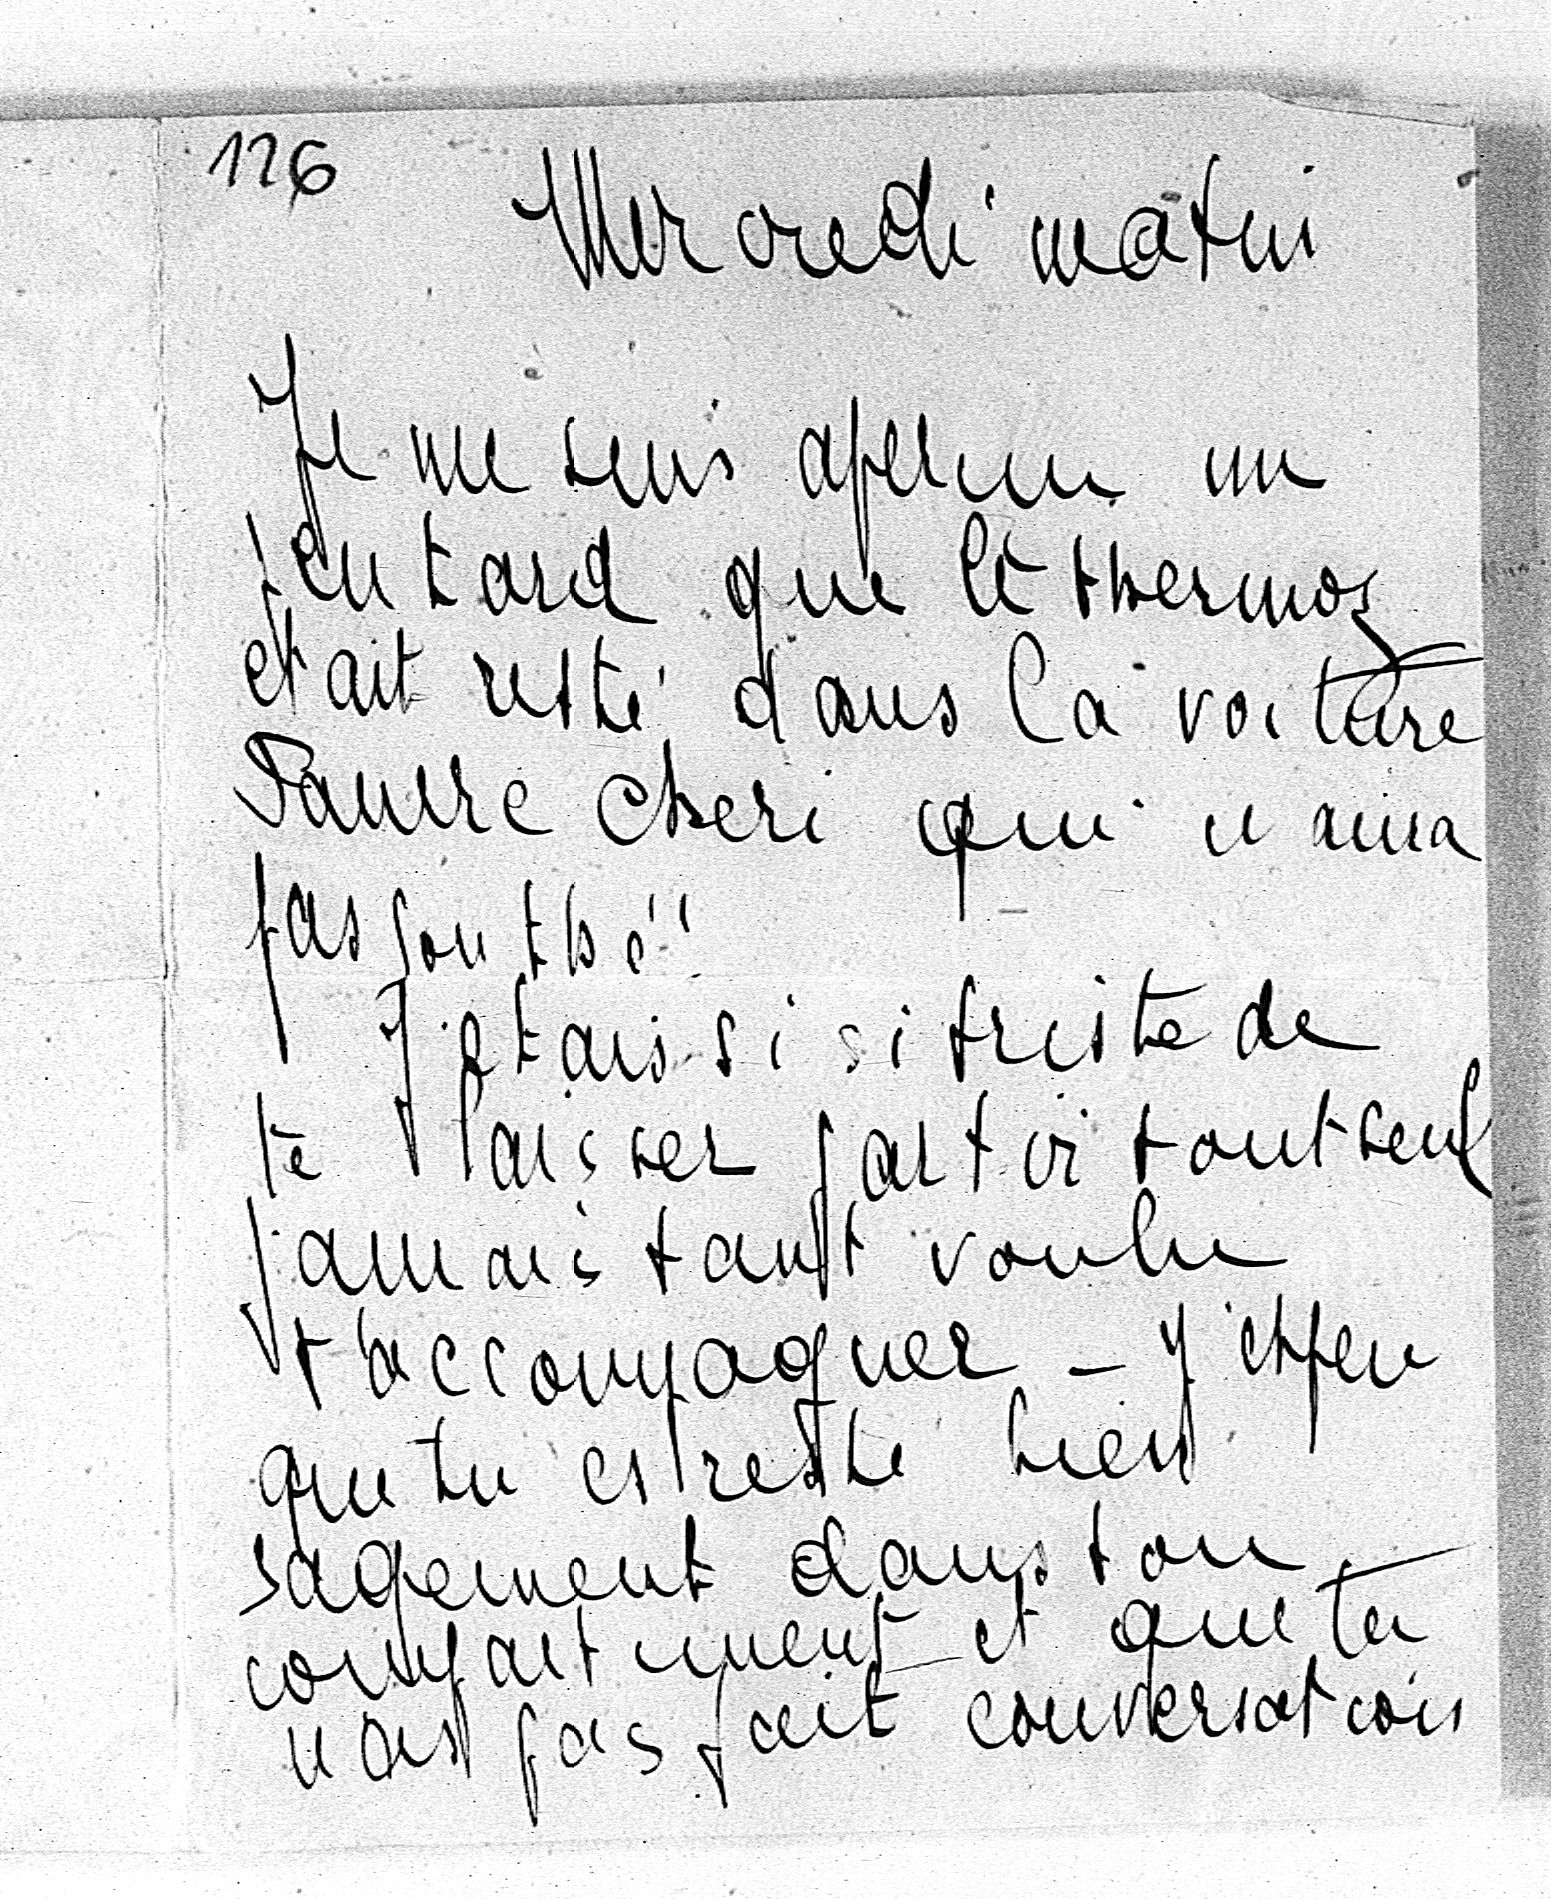 126
Mercredi matin
Je me suis aperçu un
peu tard que le thermos
etait resté dans la voiture
Pauvre cheri qui n aura
pas son thé!!
J'etais si si triste de
te laisser partir tout seul
j'aurais tant voulu
t'accompagner – J'espère
que tu es resté bien
sagement dans ton
compartiment et que tu
n as pas fait conversation